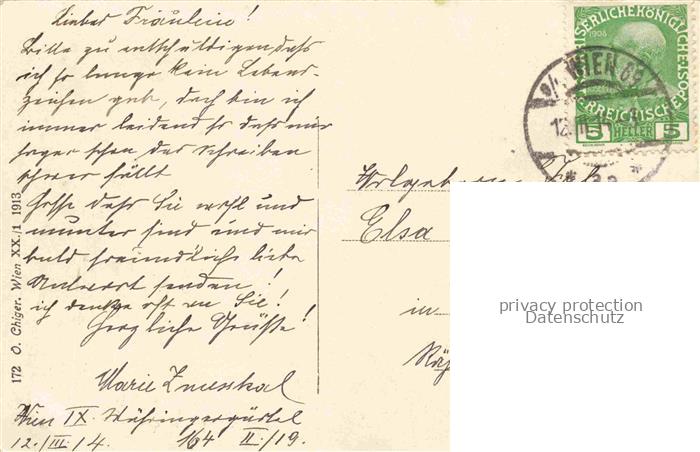 Liebes Fräulein!
Bitte zu entschuldigen, dass
ich so lange kein Lebens-
zeichen gab, doch bin ich
immer leidend so dass mir
sogar schon das Schreiben
schwer fällt
Hoffe dass Sie wohl und
munter sind und mir
bald freundliche liebe
Antwort senden!
ich denke oft an Sie!
Herzliche Grüsse!
Marie Zmeskal
Wien IX. Währingergürtel
12./III. 14. 164 II./19.
172 O. Chiger, Wien XX./1 1913
KAISERLICHE KÖNIGLICHE
ÖSTERREICHISCHE POST
1908
5 HELLER 5
WIEN
Wohlgeboren
Elsa
in
privacy protection
Datenschutz